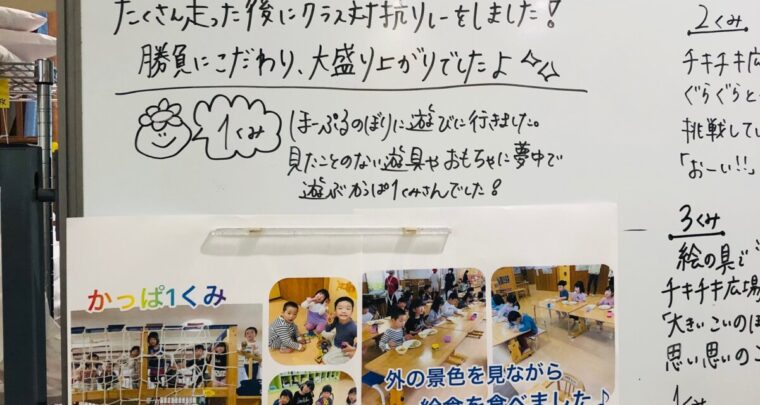 たくさん走った後にクラス対抗リレーをしました！
勝負にこだわり、大盛り上がりでしたよ
1くみ
ほーぷるのぼりに遊びに行きました。
見たことのない遊具やおもちゃに夢中で
遊ぶかっぱ1くみさんでした！
2くみ
チキチキ広
ぐらぐらと
挑戦してい
「おーい!!」
3くみ
絵の具で
チキチキ広場
「大きいこいのぼ
思い思いのこ
1くみ
かっぱ1くみ
外の景色を見ながら
給食を食べました♪